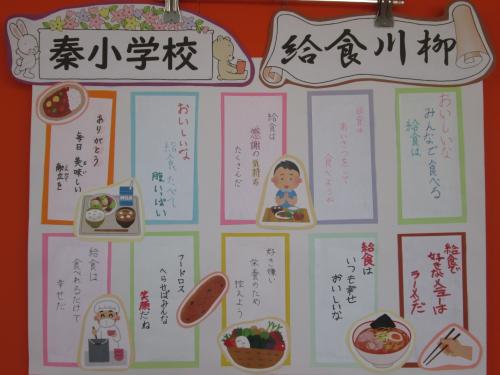 秦小学校
給食川柳
おいしいな
みんなで食べる
給食は
給食は
あいさつをして
食べようね
給食は
感謝の気持ち
たくさんだ
おいしいな
給食たべて
腹いっぱい
ありがとう
毎日美味しい
献立を
給食で
好きなメニューは
ラーメンだ
給食は
いつも幸せ
おいしいな
好き嫌い
栄養のため
控えよう
フードロス
へらせばみんな
笑顔だね
給食は
食べれるだけで
幸せだ